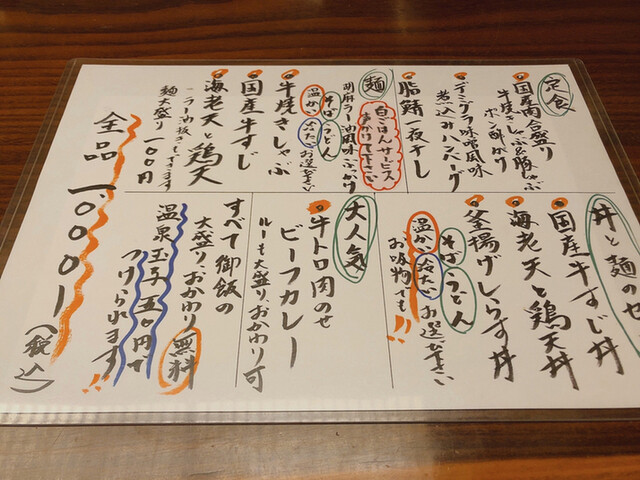 定食
国産南台盛り
牛焼きしゃぶ&豚しゃぶ
ポン酢かけ
デミグラ味噌風味
煮込みハンバーグ
脂鯖一夜干し
麺
白ごはんサービス
お分け下さい
胡麻ラー油風味ぶっかけ
そば、うどん
温かい 冷たい お選び下さい
牛焼きしゃぶ
国産牛すじ
海老天と鶏天
ラー油抜きできます
麺大盛り 一〇〇円
丼と麺のせ
国産牛すじ丼
海老天と鶏天丼
釜揚げしらす丼
そば、うどん
温かい 冷たい お選び下さい
お吸物でも!!
大人気
牛トロ肉のせ
ビーフカレー
ルーも大盛り、おかわり可
すべて御飯の
大盛り、おかわり無料
温泉玉子 五〇円で
つけられます!!
全品 一、〇〇〇ー(税込)